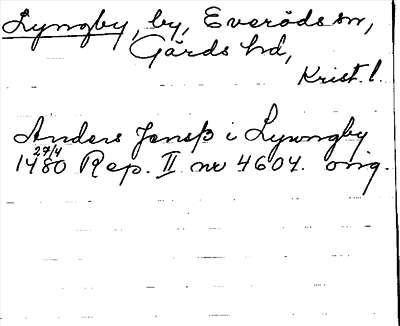 Lyngby, by, Everöds sn,
Gärds hd,
Krist. l.
Anders Jensß i Lywngby
27/4
1480 Rep. II nr 4604. orig.